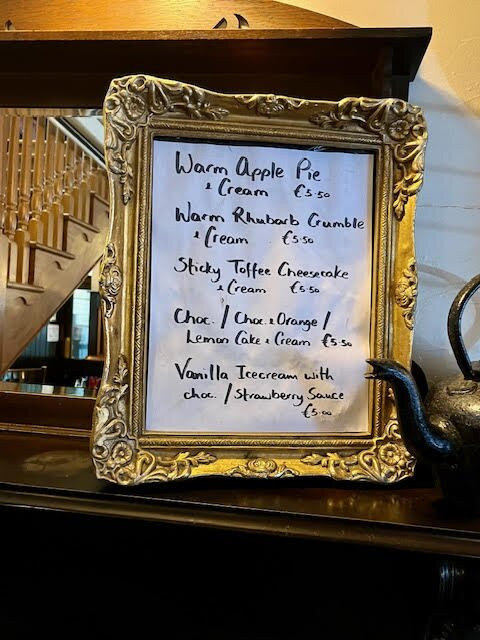 Warm Apple Pie
& Cream €5.50
Warm Rhubarb Crumble
& Cream €5.50
Sticky Toffee Cheesecake
& Cream €5.50
Choc. / Choc & Orange /
Lemon Cake & Cream €5.50
Vanilla Icecream with
choc. / Strawberry Sauce
€5.00